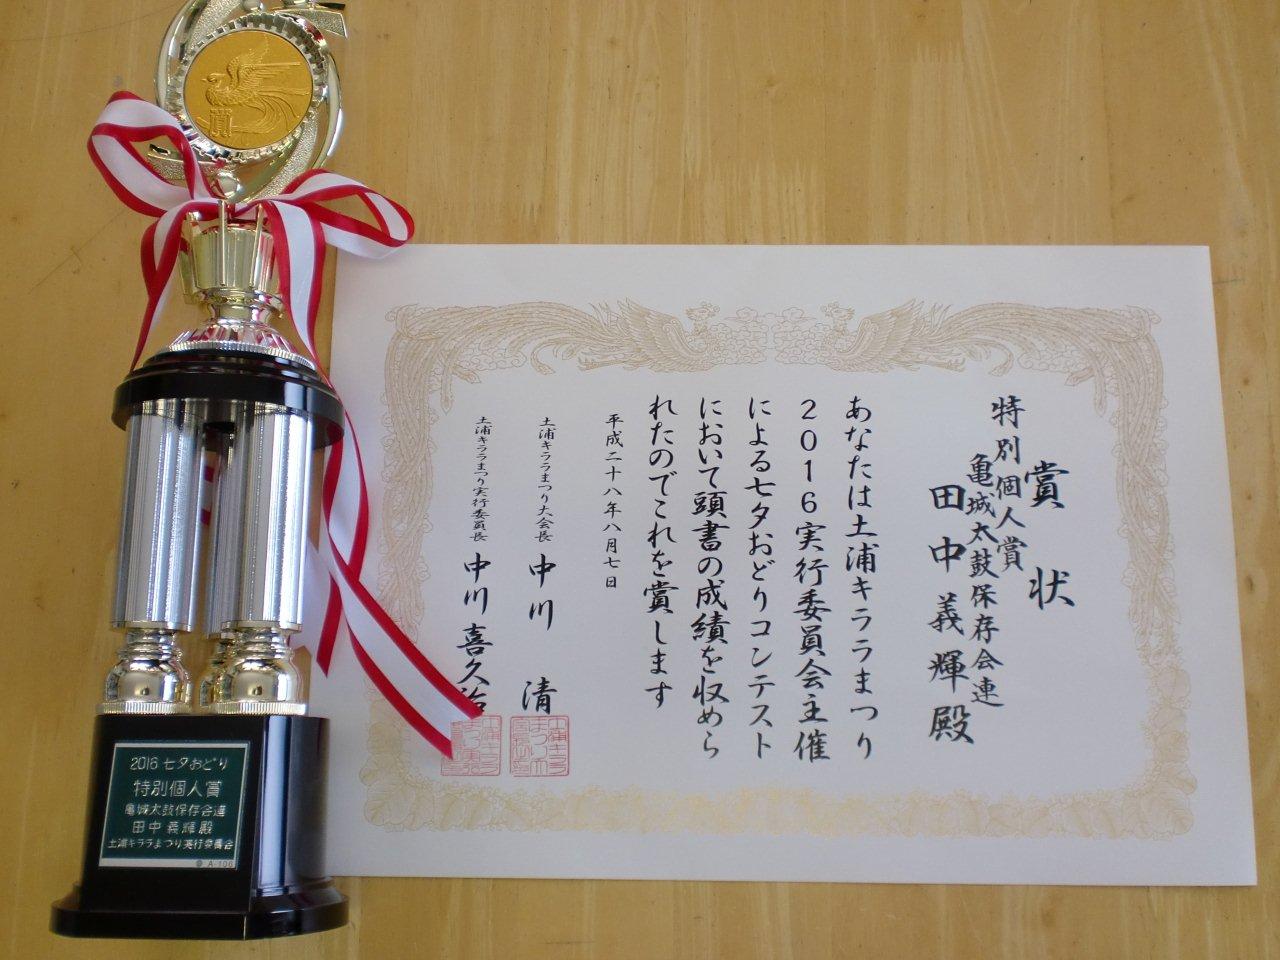 賞
賞状
特別個人賞
亀城太鼓保存会連
田中義輝殿
あなたは土浦キララまつり
2016実行委員会主催
による七夕おどりコンテスト
において頭書の成績を収めら
れたのでこれを賞します
平成二十八年八月七日
土浦キララまつり大会長 中川 清
土浦キララまつり実行委員長 中川喜久治
2016 七夕おどり
特別個人賞
亀城太鼓保存会連
田中義輝殿
土浦キララまつり実行委員会
A-106